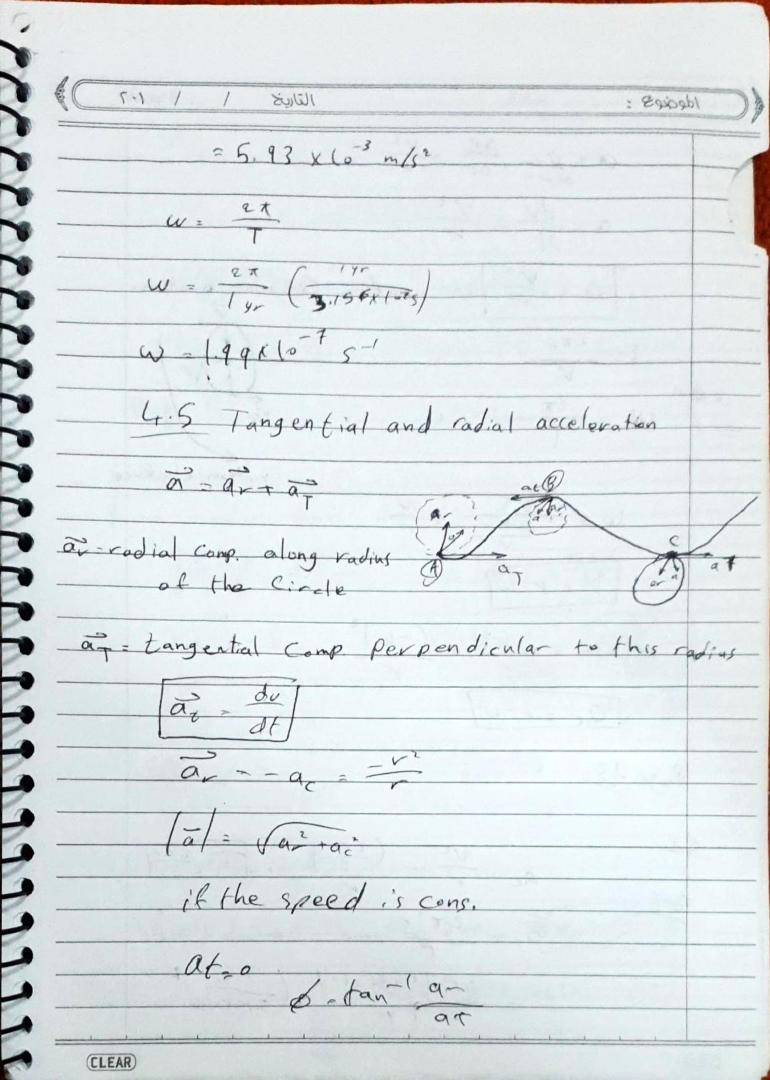 الموضوع :
التاريخ / / ٢٠١
= 5.93 x 10⁻³ m/s²
w = 2π/T
w = 2π/1 yr (1 yr/3.156x10⁷s)
w = 1.99x10⁻⁷ s⁻¹
4.5 Tangential and radial acceleration
a⃗ = a⃗r + a⃗T
a⃗r = radial comp. along radius
of the circle
ar
a
A
aT
at
B
a
ar
C
ar
a
at
a⃗T = tangential comp perpendicular to this radius
a⃗t = dv/dt
a⃗r = - ac = -v²/r
|a⃗| = √ar² + ac²
if the speed is cons.
at = 0
ϕ = tan⁻¹ ar/aT
CLEAR